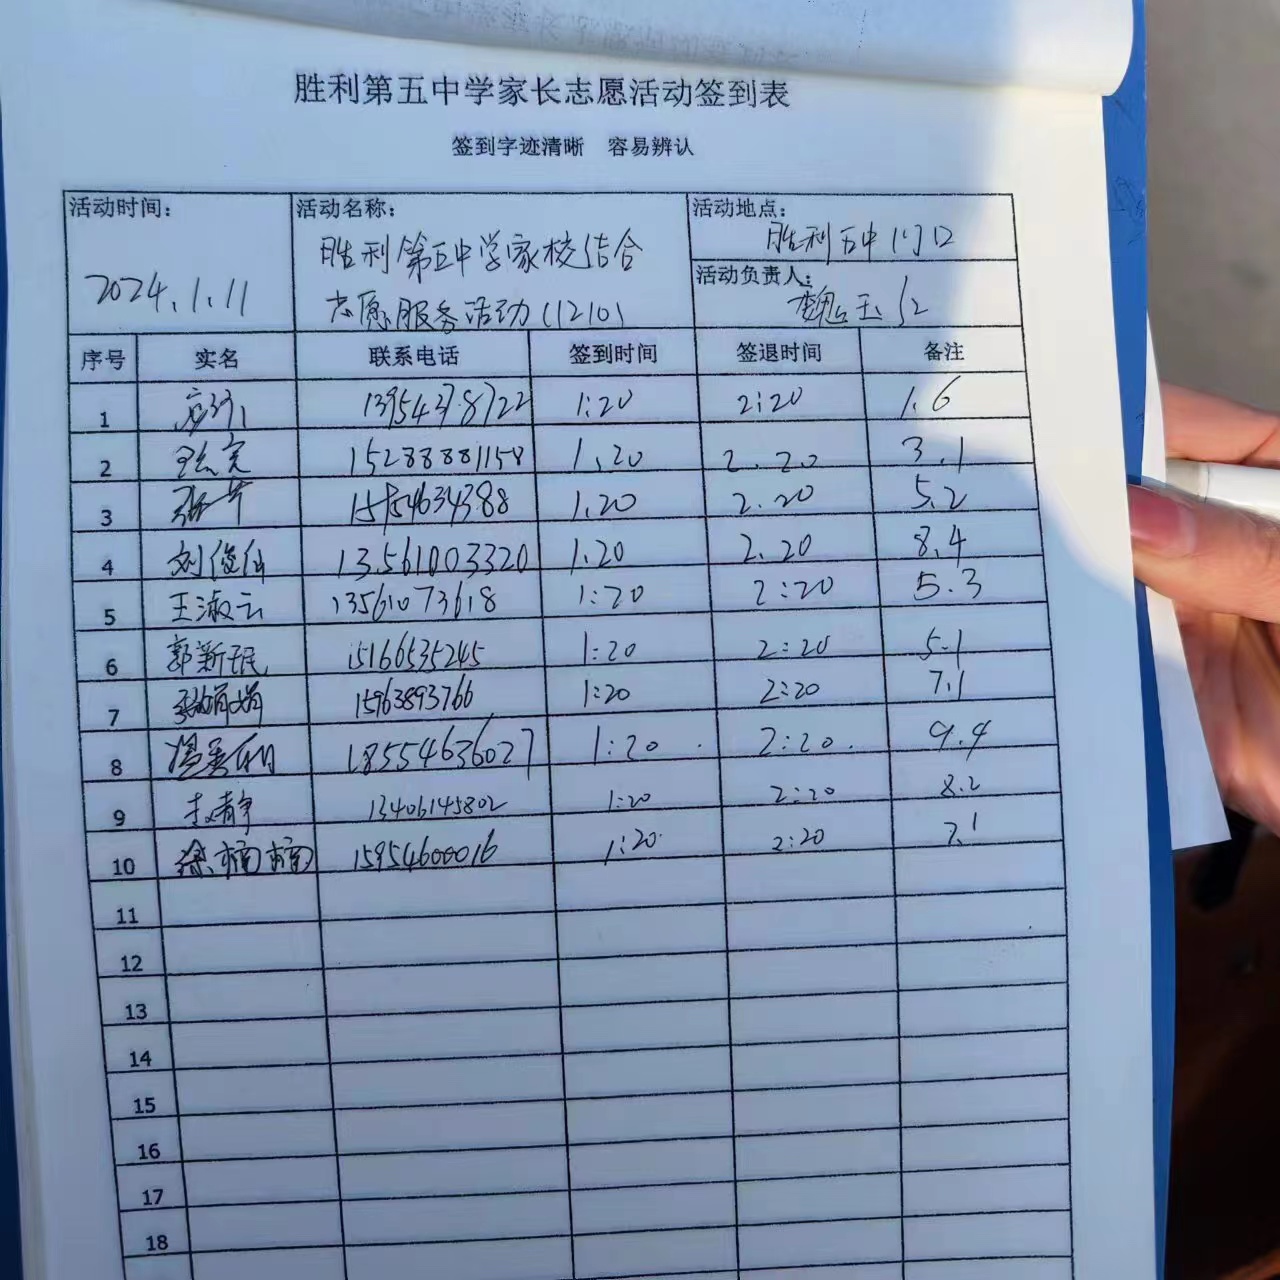 胜利第五中学家长志愿活动签到表
签到字迹清晰 容易辨认
活动时间: 2024.1.11
活动名称: 胜利第五中学家校结合
志愿服务活动(1210)
活动地点: 胜利五中门口
活动负责人: 魏玉
序号 实名 联系电话 签到时间 签退时间 备注
1 13954378722 1:20 2:20 1.6
2 15288881158 1.20 2.20 3.1
3 张 15154634388 1.20 2.20 5.2
4 刘俊仙 13561003320 1:20 2.20 8.4
5 王淑云 13561073618 1:20 2:20 5.3
6 郭新民 15166535245 1:20 2:20 5.1
7 张娟娟 15963893766 1:20 2:20 7.1
8 18554636027 1:20 2:20 9.4
9 静 13406145802 1:20 2:20 8.2
10 徐楠楠 15954600016 1:20 2:20 7.1
11
12
13
14
15
16
17
18